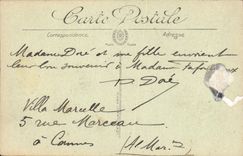 Carte Postale
Correspondance
Adresse
Madame Doré et sa fille envoient
leur bon souvenir à Madame
D Doré
Villa Marcelle
5 rue Marceau
à Cannes
(Al Mar.)